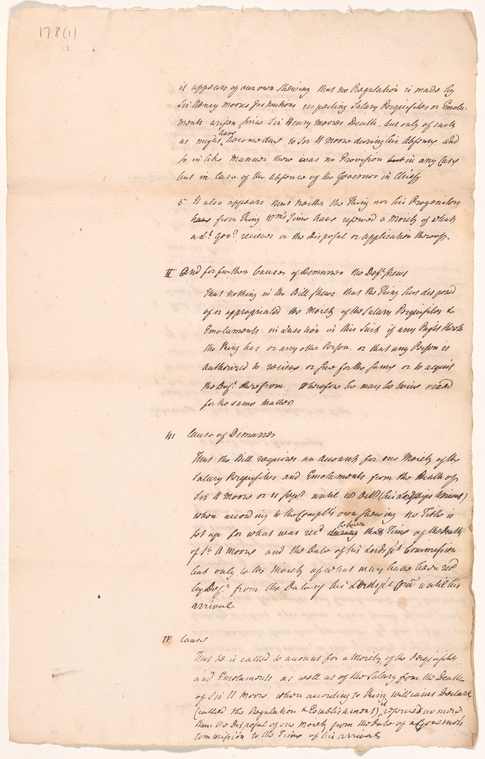 178(1)
it appears of our own Shewing that no Regulation is made by
Sir Henry Moores Instructions respecting Salary Perquisites or Emolu-
ments arisen since Sir Henry Moores Death but only of such
as might have become due to Sir H Moore during his Absence and
so in like manner there was no Provision but in any Case
but in Case of the absence of the Governor in Chief.
5 It also appears that neither the King nor his Progenitors
have from King Wms Time have reserved a Moiety of what
a Lt. Govr. receives or the Disposal or application thereof.
II And for further Causes of demurrer the Deft. Shews
That nothing in the Bill Shews that the King has disposed
of or appropriated the Moiety of the Salary Perquisites &
Emoluments in question in this Suit if any Right thereto
the King has or any other Person. or that any Person is
authorized to receive or sue for the same or to acquit
the Deft. therefrom. Wherefore he may be twice vexed
for the same matter
III Cause of Demurrer
That the Bill requires an account for one Moiety of the
Salary Perquisites and Emoluments from the Death of
Sir H Moore or 11 Sept until 18 Octr (his Lordships Arrival)
when according to the Complts own Shewing no Title is
set up for what was recd between the Time of the Death
of Sr H Moore and the Date of his Lordships Commission
but only to the Moiety of what may have been recd
by Deft. from the Date of his Lordships Com until his
arrival
IV Cause
That he is called to account for a Moiety of the Perquisites
and Emoluments as well as of the Salary from the Death
of Sir H Moore when according to King Williams Declara
(called the Regulation & Establishment) is reserved no more
than the Disposal of one Moiety from the Date of a Governors
Commission to the Time of his arrival